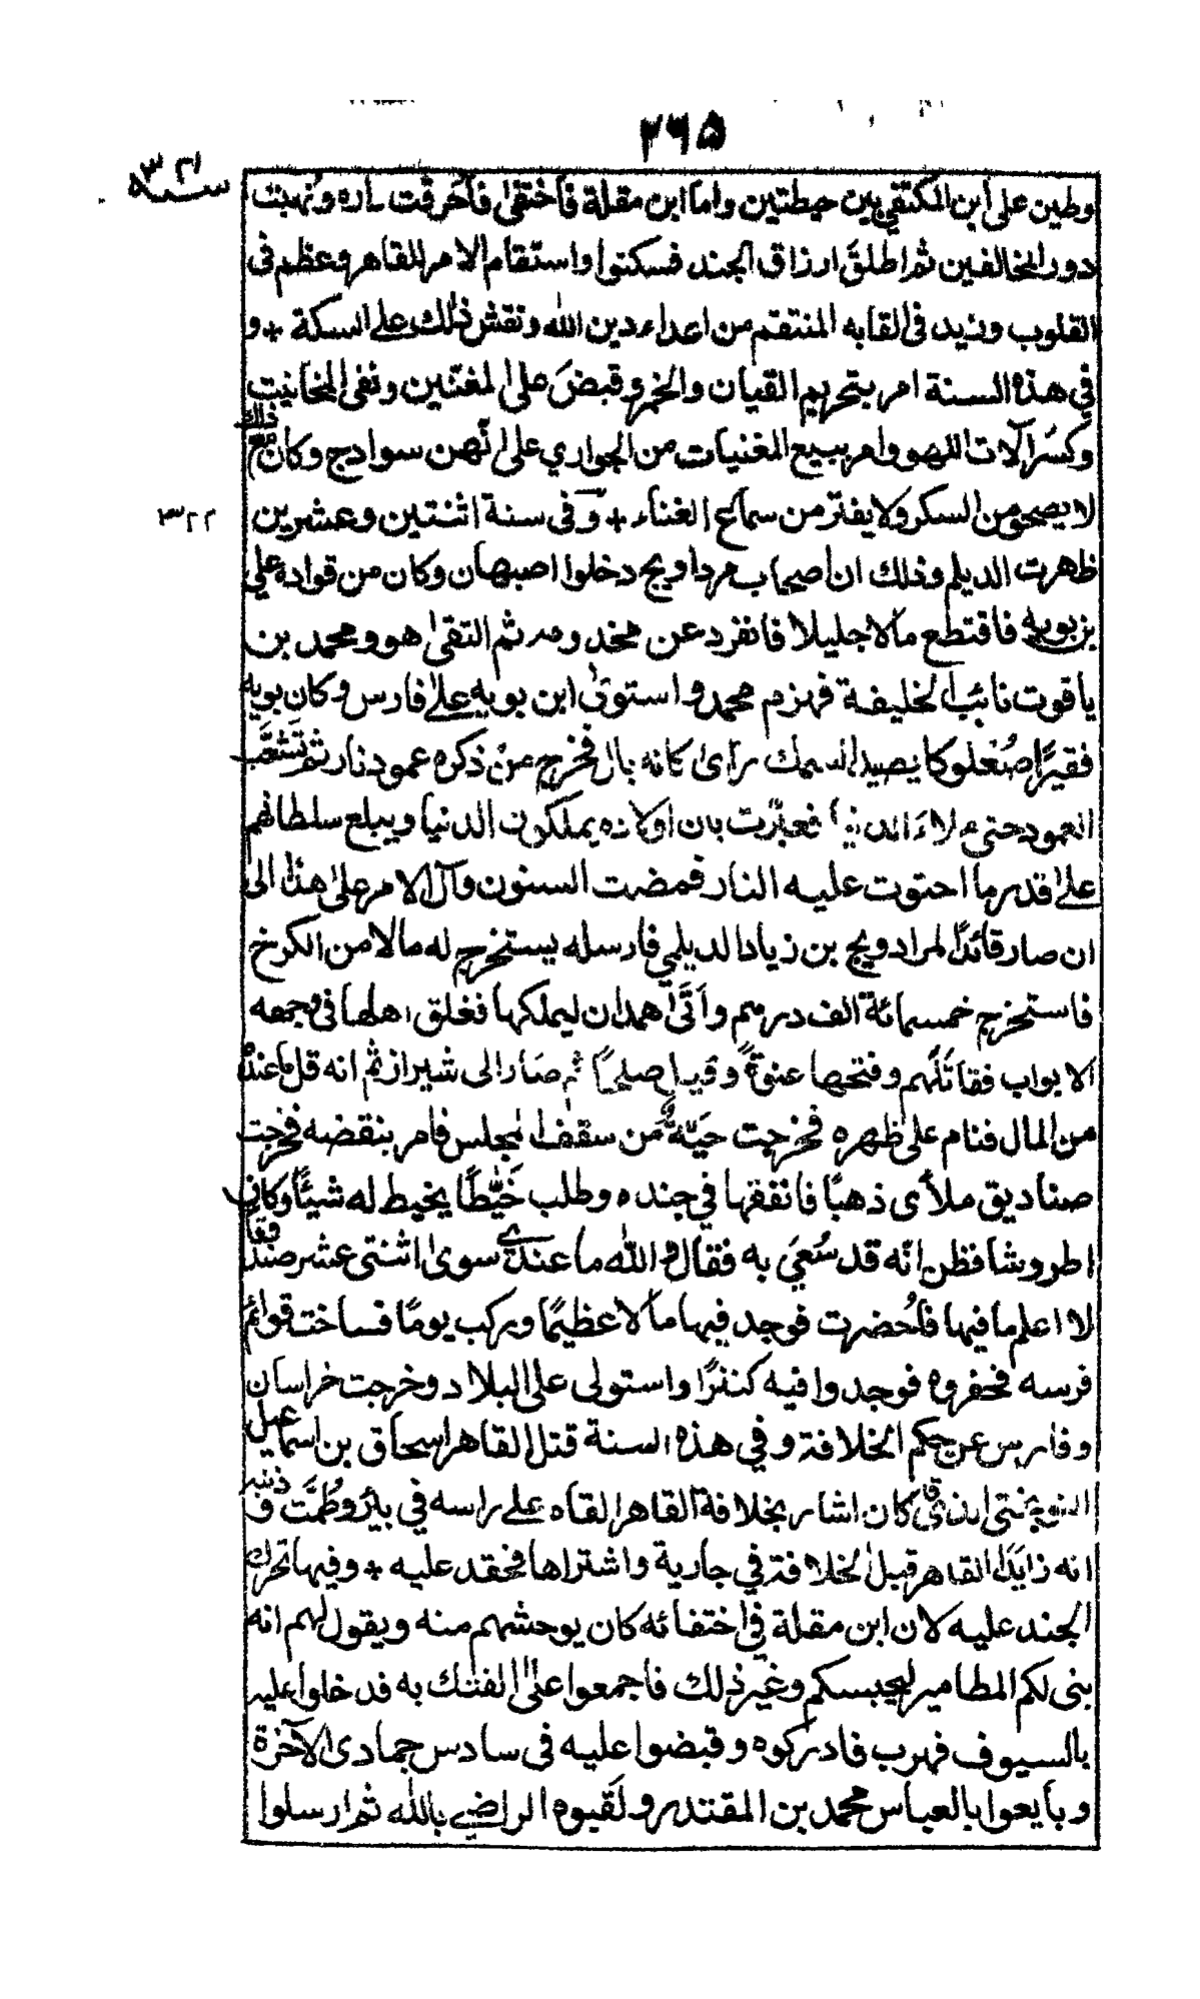 ٢٦٥
سنة ٣٢١
وطين على ابن المكتفي بين حيطتين واما ابن مقلة فاختفىٰ فاُحرقت داره ونُهبت
دور المخالفين ثم اطلق ارزاق الجند فسكتوا واستقام الامر للقاهر وعظم فى
القلوب وزيد فى القابه المنتقم من اعداء دين اللّٰه ونقش ذٰلك على السكة + و
في هذه السنة امر بتحريم القيان والخمر وقبضَ على المغنّين ونفى المخانيت
وكسّر آلات اللهو وامر ببيع المغنيات من الجواري على انّهن سوادج وكان مع ذلك
لا يصحو من السكر ولا يفتر من سماع الغناء + وفى سنة اثنتين وعشرين
٣٢٢
ظهرت الديلم وذلك ان اصحاب مرداويج دخلوا اصبهان وكان من قواده علي
بن بويه فاقتطع مالا جليلا فانفرد عن مخدومه ثم التقىٰ هو ومحمد بن
ياقوت نائب الخليفة فهزم محمد واستوىٰ ابن بويه على فارس وكان بويه
فقيرًا صُعلوكا يصيد السمك رأىٰ كانه بال فخرج من ذكره عمود نار ثم تشعّب
العمود حتى ملاء الدنيا فعبّرت بان اولاده يملكون الدنيا ويبلع سلطانهم
على قدر ما احتوت عليه النار فمضت السنون وآل الامر على هذا الى
ان صار قائدًا لمرادويج بن زياد الديلمي فارسله يستخرج له مالا من الكرخ
فاستخرج خمسمائة الف درهم واَتىٰ همدان ليملكها فغلق اهلها في وجهه
الابواب فقاتَلَهم وفتحها عنوةً وقيل صلحًا ثم صار الى شيراز ثم انه قل ما عنده
من المال فنام على ظهره فخرجت حيّةٌ من سقف المجلس فامر بنقضه فخرجت
صناديق ملأى ذهبًا فانفقها في جنده وطلب خيّطًا يخيط له شيئًا وكان
اطروشا فظن انّه قد سُعيَ به فقال واللّٰه ما عندي سوىٰ اثنتى عشر صندوقا
لا اعلم ما فيها فاُحضرت فوجد فيها مالا عظيمًا وركب يومًا فساخت قوائم
فرسه فحفروه فوجدوا فيه كنزًا واستولى على البلاد وخرجت خراسان
وفارس عن حكم الخلافة وفي هذه السنة قتل القاهر اسحاق بن اسماعيل
النوبختى الذى كان اشار بخلافة القاهر القاه على راسه في بئر وطُمّت وذنبه
انه زايَدَ القاهر قبل الخلافة في جارية واشتراها فحقد عليه + وفيها تحرك
الجند عليه لان ابن مقلة في اختفائه كان يوحشهم منه ويقول لهم انه
بنى لكم المطامير ليحبسكم وغير ذلك فاجمعوا على الفتك به فدخلوا عليه
بالسيوف فهرب فادركوه وقبضوا عليه فى سادس جمادى الآخرة
وبايعوا بالعباس محمد بن المقتدر ولقبوه الراضي باللّٰه ثم ارسلوا